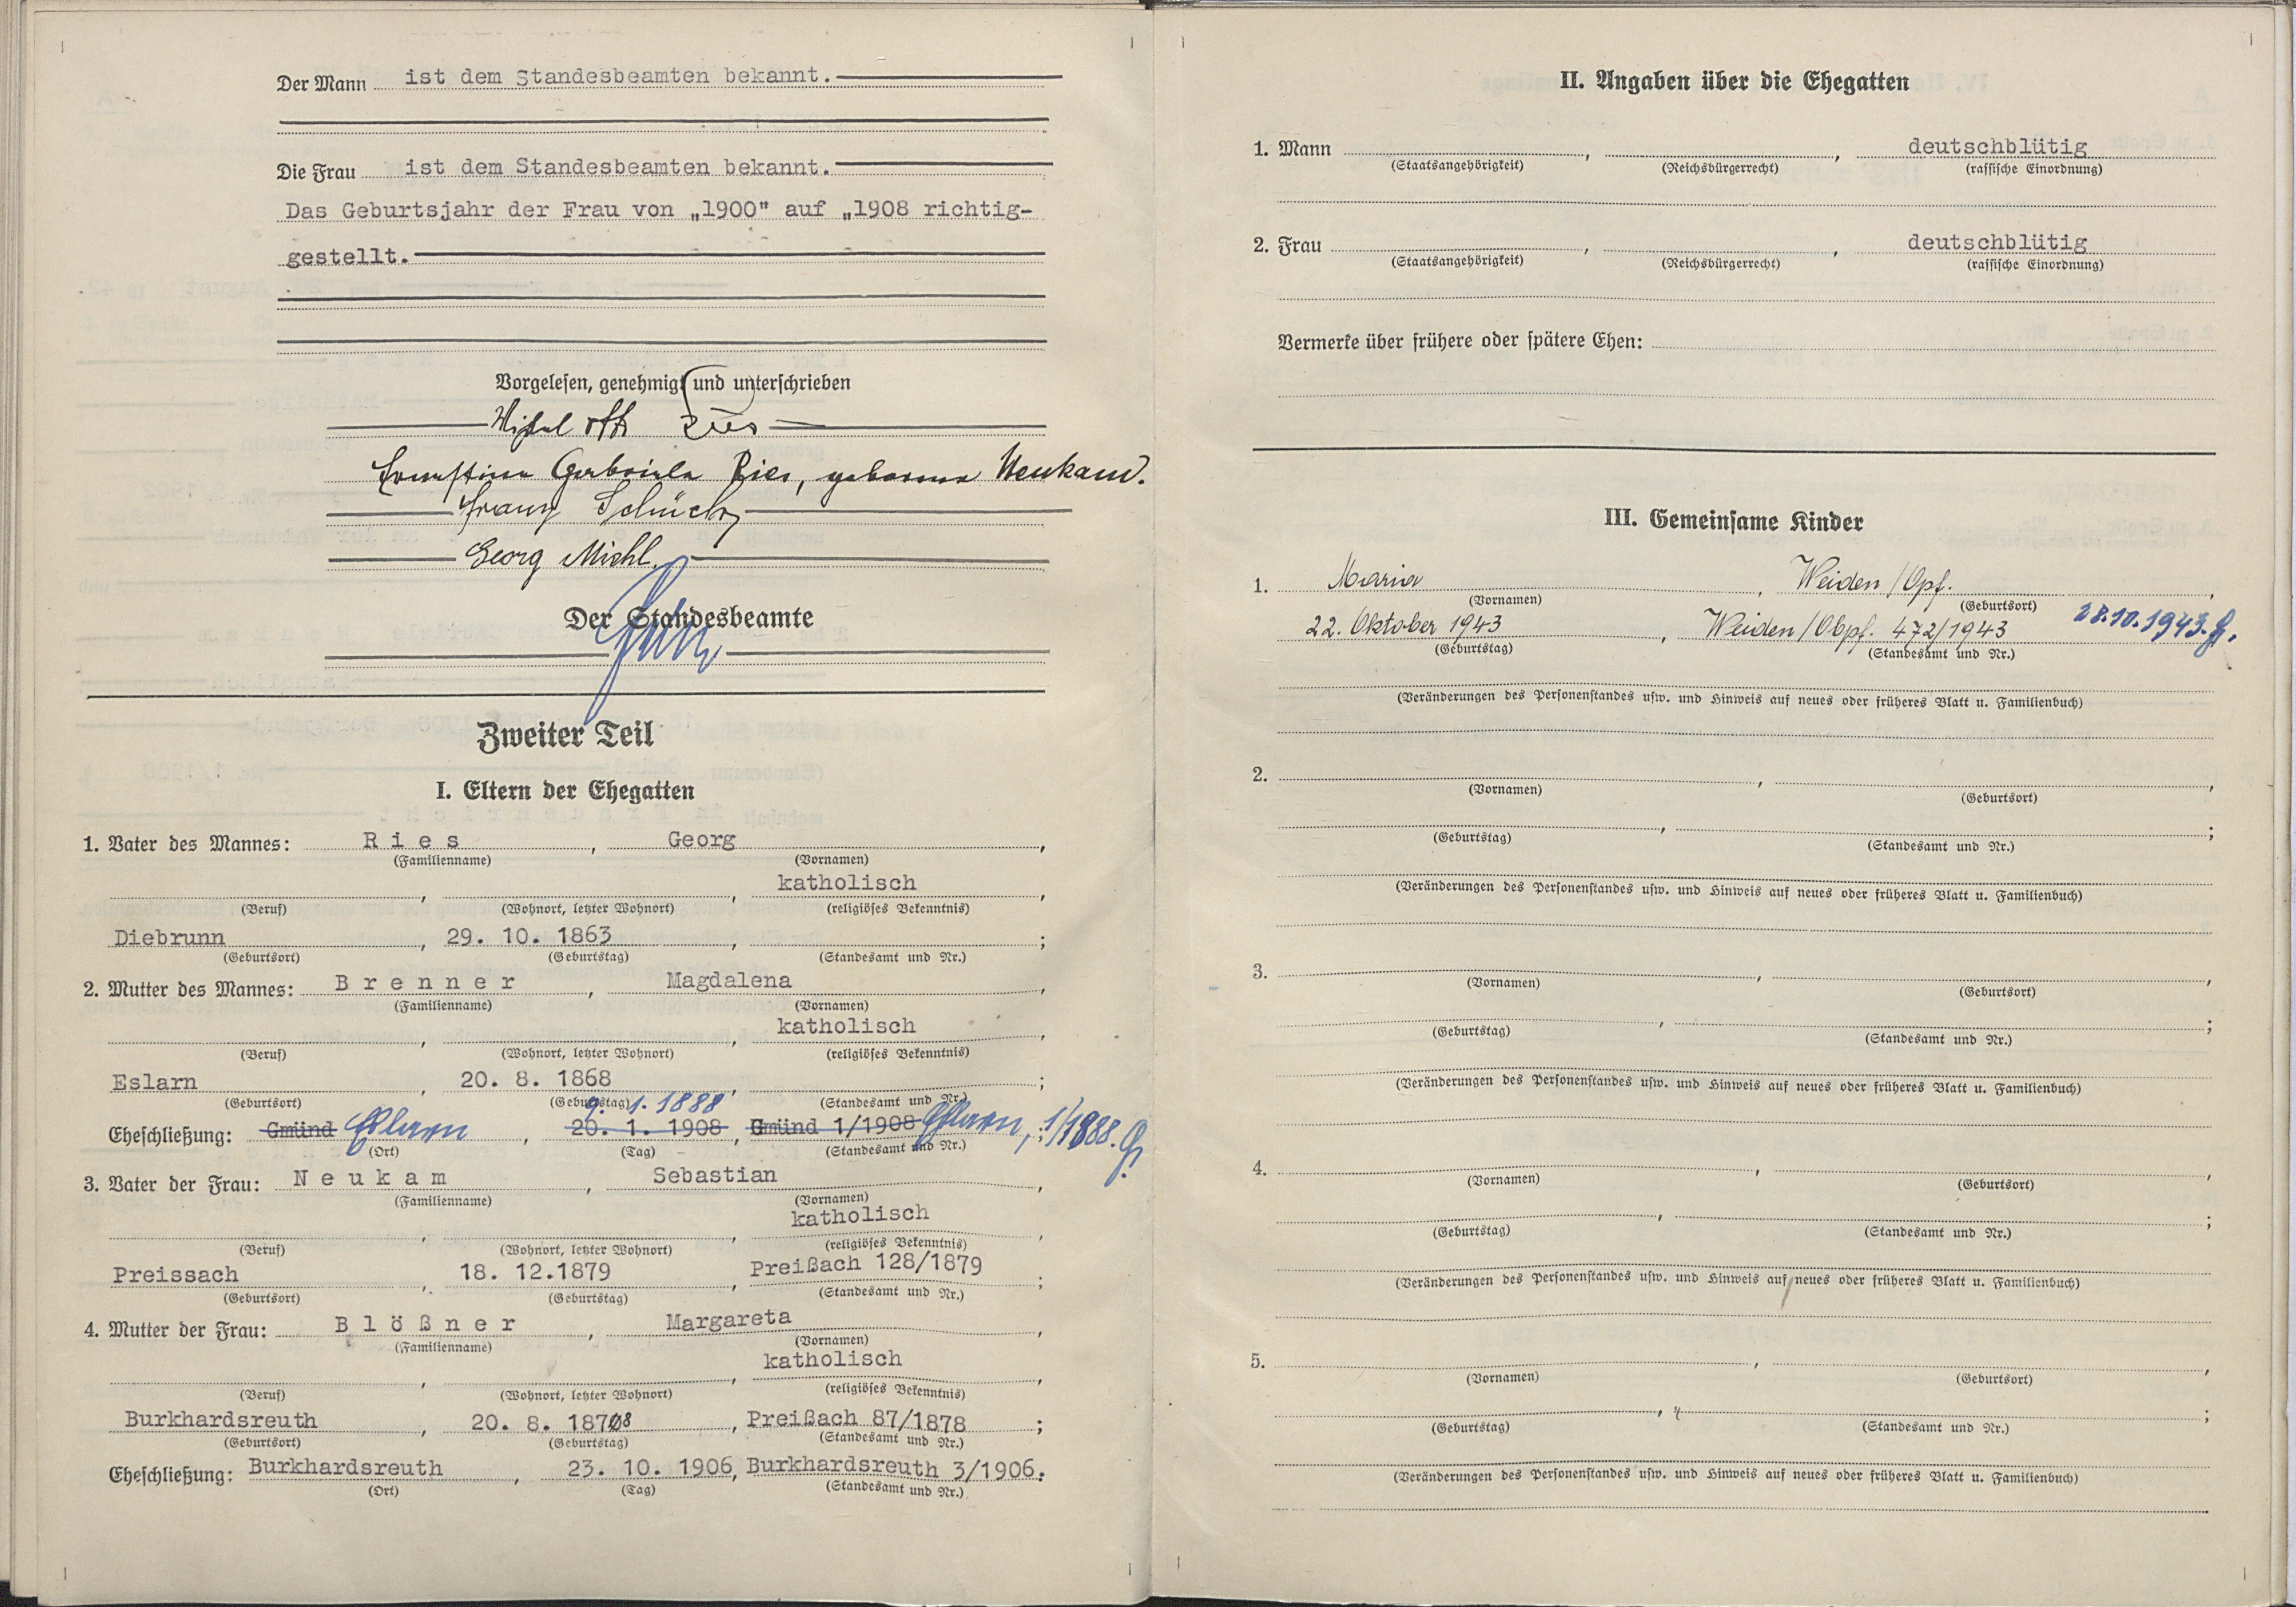 Der Mann ist dem Standesbeamten bekannt.
Die Frau ist dem Standesbeamten bekannt.
Das Geburtsjahr der Frau von „1900" auf „1908 richtig-
gestellt.
Vorgelesen, genehmigt und unterschrieben
Ries
Ernestina Gabriela Ries, geborene Neukam.
Franz
Georg Michl.
Der Standesbeamte
Zweiter Teil
I. Eltern der Ehegatten
1. Vater des Mannes: Ries, Georg,
(Familienname) (Vornamen)
, , katholisch,
(Beruf) (Wohnort, letzter Wohnort) (religiöses Bekenntnis)
Diebrunn, 29. 10. 1863, ;
(Geburtsort) (Geburtstag) (Standesamt und Nr.)
2. Mutter des Mannes: Brenner, Magdalena,
(Familienname) (Vornamen)
, , katholisch,
(Beruf) (Wohnort, letzter Wohnort) (religiöses Bekenntnis)
Eslarn, 20. 8. 1868, ;
(Geburtsort) (Geburtstag) (Standesamt und Nr.)
9. 1. 1888
Eheschließung: Gmünd Eslarn, 20. 1. 1908, Gmünd 1/1908 Eslarn, ; 1/1888. G.
(Ort) (Tag) (Standesamt und Nr.)
3. Vater der Frau: Neukam, Sebastian,
(Familienname) (Vornamen)
, , katholisch,
(Beruf) (Wohnort, letzter Wohnort) (religiöses Bekenntnis)
Preissach, 18. 12.1879, Preißach 128/1879;
(Geburtsort) (Geburtstag) (Standesamt und Nr.)
4. Mutter der Frau: Blößner, Margareta,
(Familienname) (Vornamen)
, , katholisch,
(Beruf) (Wohnort, letzter Wohnort) (religiöses Bekenntnis)
Burkhardsreuth, 20. 8. 1878, Preißach 87/1878;
(Geburtsort) (Geburtstag) (Standesamt und Nr.)
Eheschließung: Burkhardsreuth, 23. 10. 1906, Burkhardsreuth 3/1906.
(Ort) (Tag) (Standesamt und Nr.)
II. Angaben über die Ehegatten
1. Mann , , deutschblütig
(Staatsangehörigkeit) (Reichsbürgerrecht) (rassische Einordnung)
2. Frau , , deutschblütig
(Staatsangehörigkeit) (Reichsbürgerrecht) (rassische Einordnung)
Vermerke über frühere oder spätere Ehen:
III. Gemeinsame Kinder
1. Maria, Weiden/Opf.,
(Vornamen) (Geburtsort)
22. Oktober 1943, Weiden/Obpf. 472/1943 28.10.1943. G.
(Geburtstag) (Standesamt und Nr.)
(Veränderungen des Personenstandes usw. und Hinweis auf neues oder früheres Blatt u. Familienbuch)
2. , ,
(Vornamen) (Geburtsort)
, ;
(Geburtstag) (Standesamt und Nr.)
(Veränderungen des Personenstandes usw. und Hinweis auf neues oder früheres Blatt u. Familienbuch)
3. , ,
(Vornamen) (Geburtsort)
, ;
(Geburtstag) (Standesamt und Nr.)
(Veränderungen des Personenstandes usw. und Hinweis auf neues oder früheres Blatt u. Familienbuch)
4. , ,
(Vornamen) (Geburtsort)
, ;
(Geburtstag) (Standesamt und Nr.)
(Veränderungen des Personenstandes usw. und Hinweis auf neues oder früheres Blatt u. Familienbuch)
5. , ,
(Vornamen) (Geburtsort)
, ;
(Geburtstag) (Standesamt und Nr.)
(Veränderungen des Personenstandes usw. und Hinweis auf neues oder früheres Blatt u. Familienbuch)